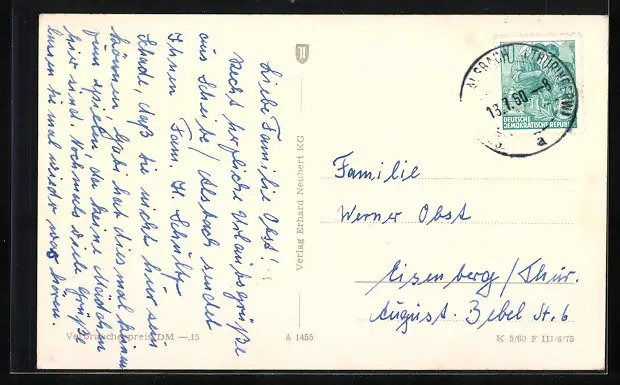 Liebe Familie Obst!
Recht herzliche Urlaubsgrüße
aus Scheibe/Alsbach sendet
Ihnen Fam. H. Schultz
Schade, daß Sie nicht hier sein
können, Gabi hat dies mal keinen
zum spielen, da keine Mädchen
hier sind. Nochmals viele Grüße
lassen sie mal wieder was hören.
Verlag Erhard Neubert KG
ALSBACH (THÜRINGER W)
13.7.60.-8
a
DEUTSCHE
DEMOKRATISCHE REPUBLIK
Familie
Werner Obst
Eisenberg/Thür.
August. Bebel St. 6
Verbraucherpreis DM —.15
A 1455
K 5/60 F III/8/75